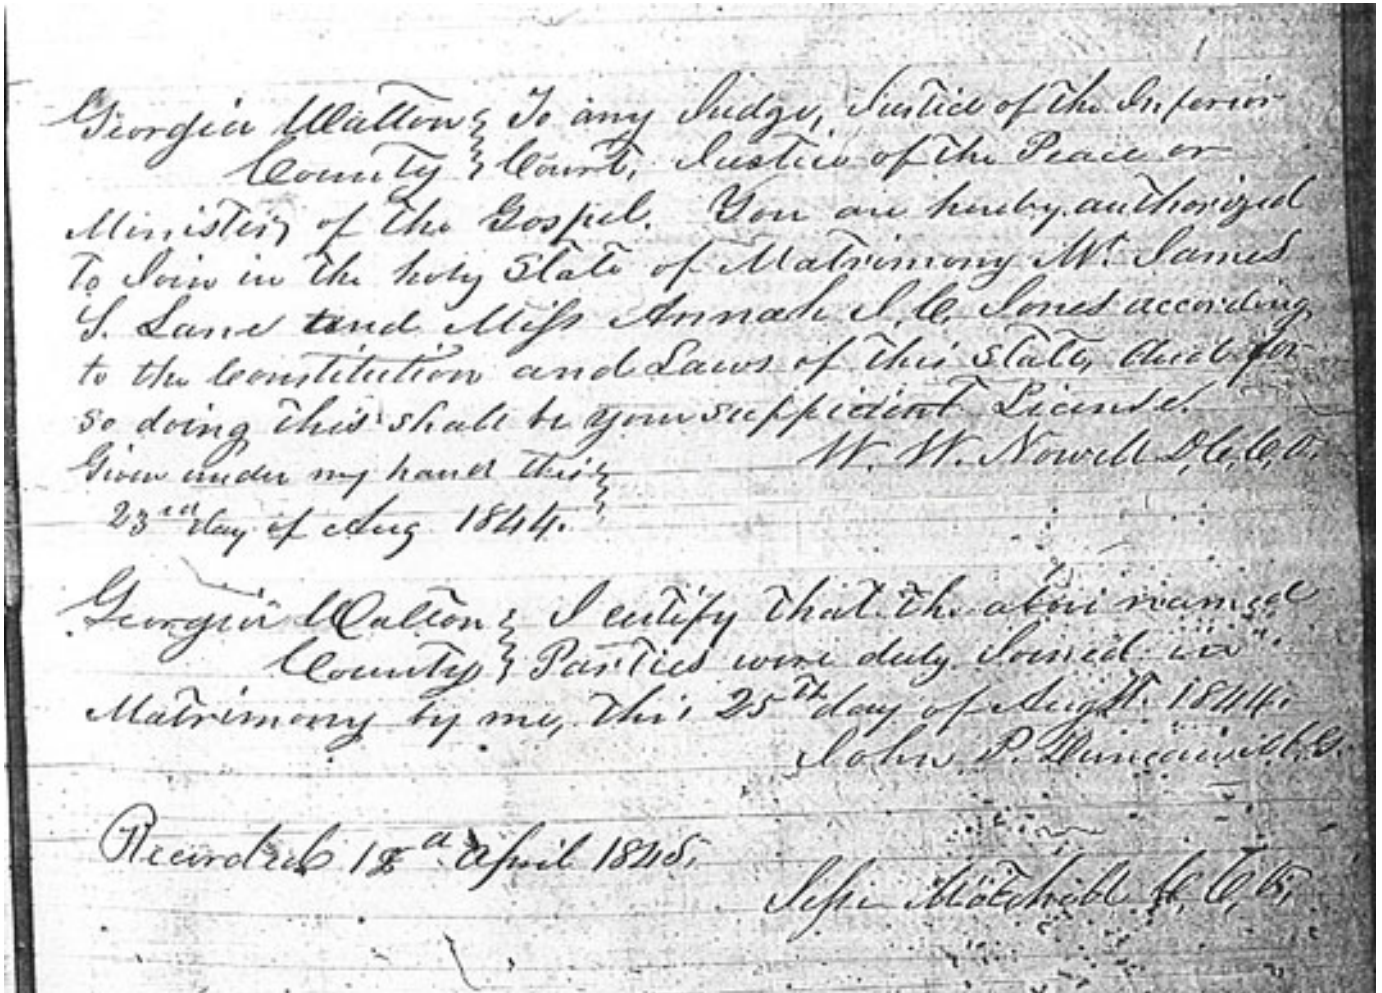 Georgia Walton } To any Judge, Justice of the Inferior
County } Court, Justice of the Peace or
Minister of the Gospel. You are hereby authorized
to Join in the holy State of Matrimony Mr. James
S. Lane and Miss Annah S. C. Jones according
to the Constitution and Laws of this State, And for
so doing this shall be your suppicient License.
Given under my hand this } W. W. Nowell D.C.C.O.
23rd day of Aug 1844.
Georgia Walton } I certify that the above named
County } Parties were duly Joined in
Matrimony by me, this 25th day of Augst. 1844.
John P. Duncan M.G.
Recorded April 1845.
Jesse C.C.O.